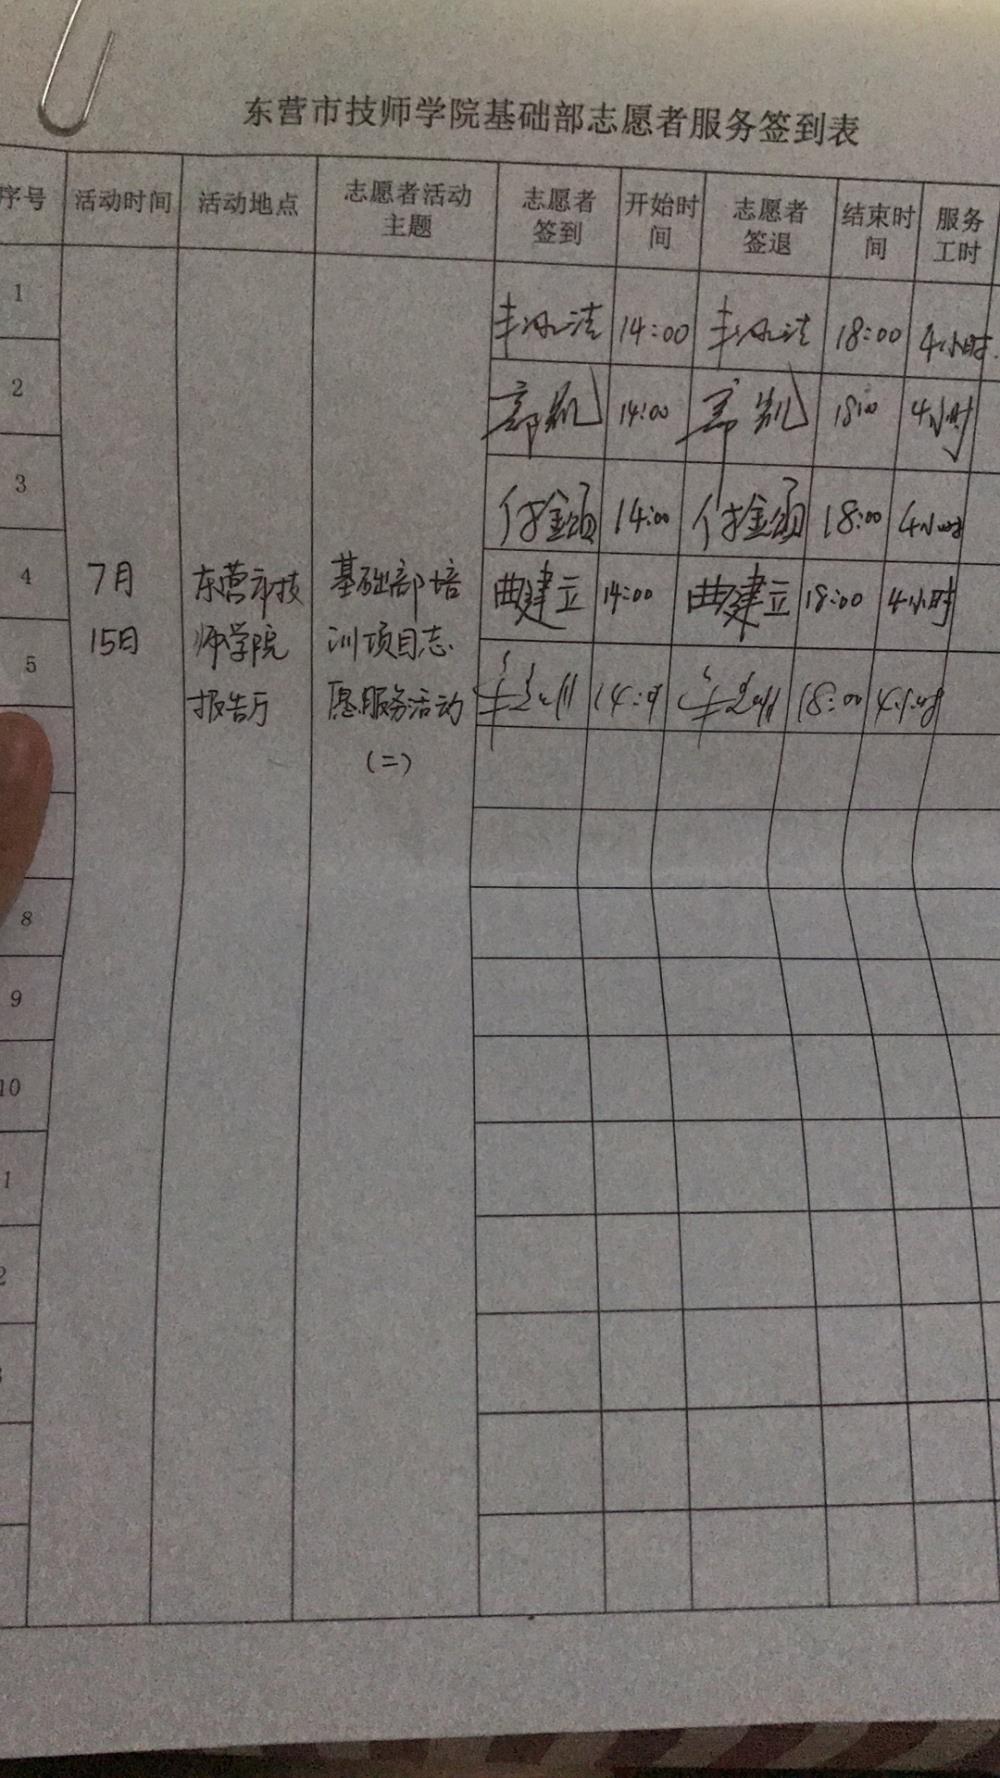 东营市技师学院基础部志愿者服务签到表
序号 活动时间 活动地点 志愿者活动 志愿者 开始时 志愿者 结束时 服务
主题 签到 间 签退 间 工时
1 14:00 18:00 4小时
2 郭凯 14:00 郭凯 18:00 4小时
3 付金颂 14:00 付金颂 18:00 4小时
4 曲建立 14:00 曲建立 18:00 4小时
5 14:00 18:00 4小时
7月
15日
东营市技
师学院
报告厅
基础部培
训项目志
愿服务活动
(二)
8
9
10
1
2